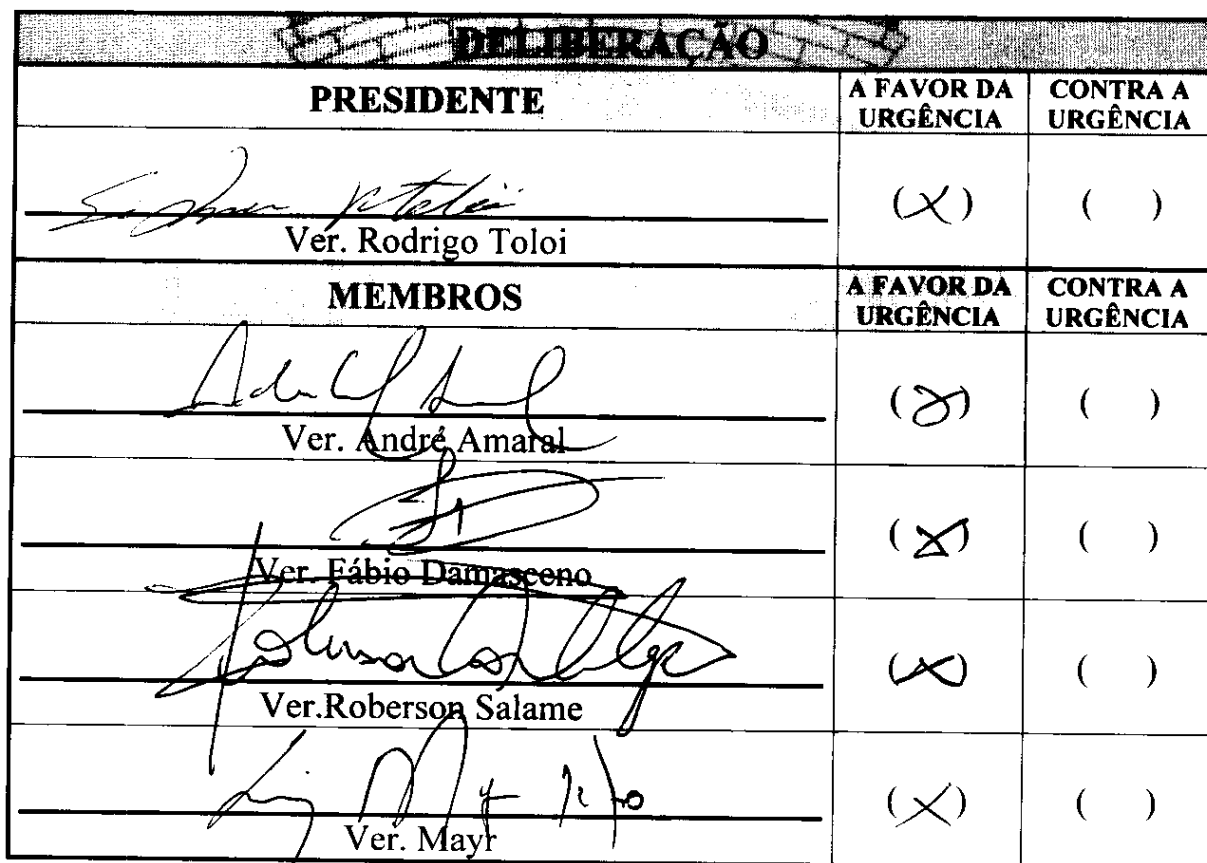 DELIBERAÇÃO
PRESIDENTE
A FAVOR DA URGÊNCIA
CONTRA A URGÊNCIA
(X) ( )
Ver. Rodrigo Toloi
MEMBROS
A FAVOR DA URGÊNCIA
CONTRA A URGÊNCIA
(X) ( )
Ver. André Amaral
(X) ( )
Ver. Fábio Damasceno
(X) ( )
Ver.Roberson Salame
(X) ( )
Ver. Mayr